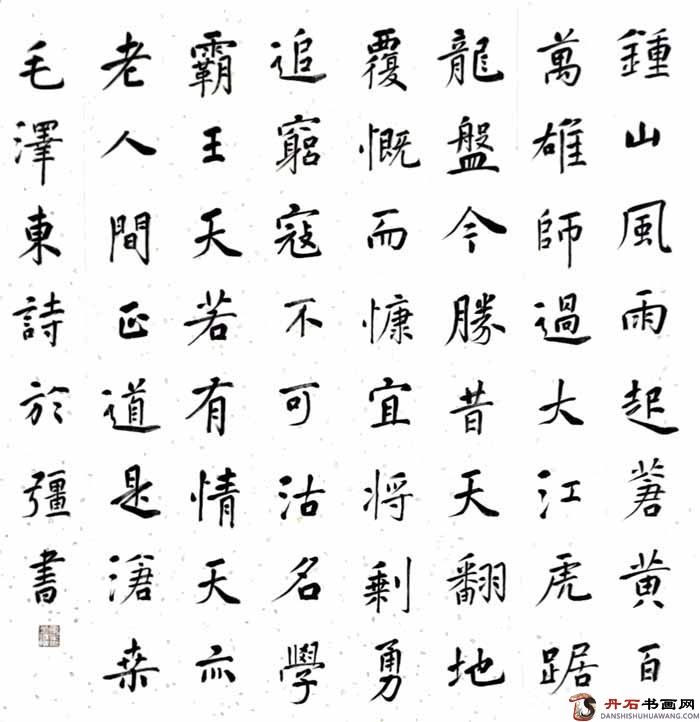 鍾山風雨起蒼黄百
萬雄師過大江虎踞
龍盤今勝昔天翻地
覆慨而慷宜将剩勇
追窮寇不可沽名學
霸王天若有情天亦
老人間正道是滄桒
毛澤東詩於彊書
丹石书画网
DANSHISHUHUAWANG.COM